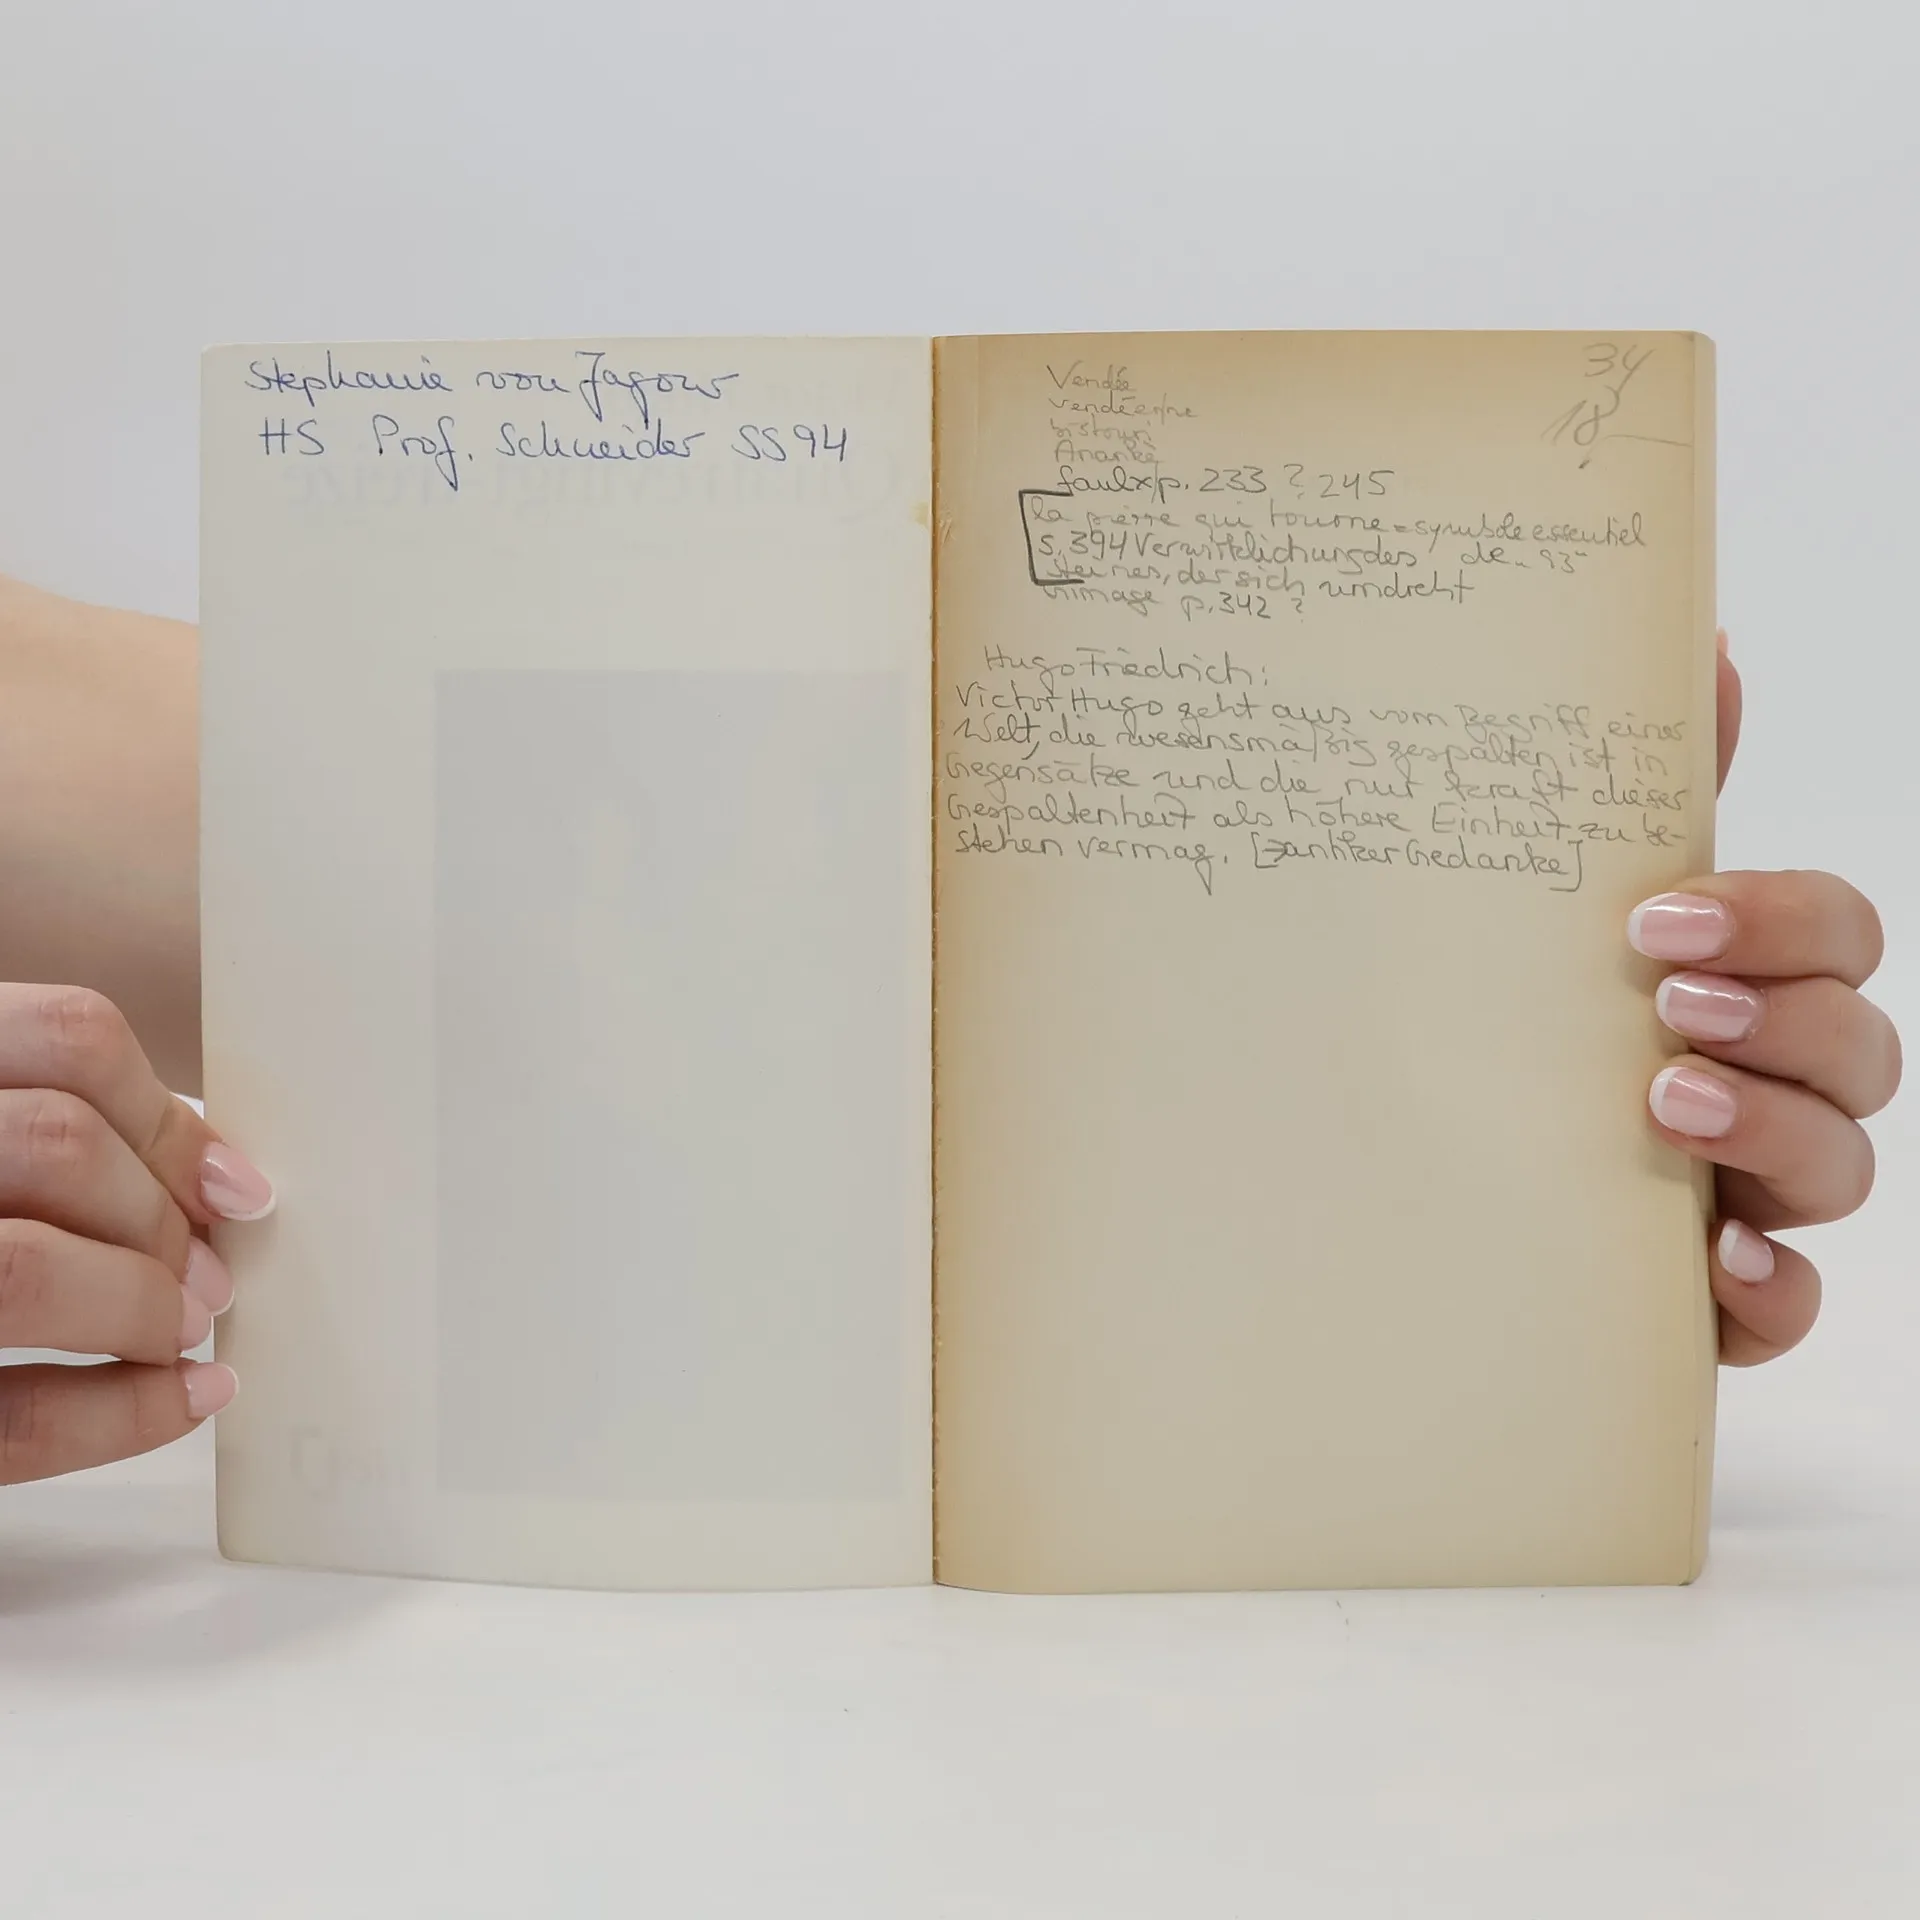 Stephanie von Jagow
HS Prof. Schneider SS 94
34
18
Vendée
vendéen/ne
bistouri
Ananké
faulx/p. 233 ? 245
la pierre qui tourne = symbole essentiel
S. 394 Verwirklichung des de „93“
Steines, der sich umdreht
grimage p. 342 ?
Hugo Friedrich:
Victor Hugo geht aus vom Begriff einer
Welt, die wesensmäßig gespalten ist in
Gegensätze und die nur kraft dieser
Gespaltenheit als höhere Einheit zu be-
stehen vermag. [antiker Gedanke]